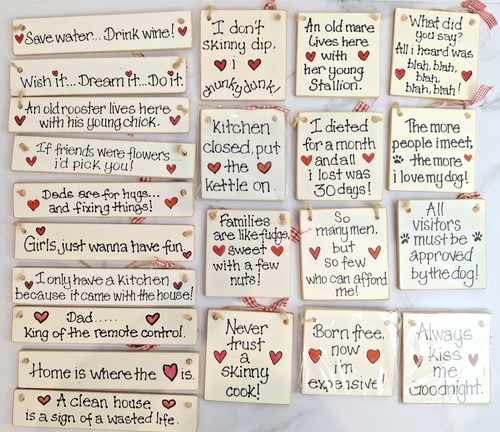 Save water... Drink wine!
Wish it...Dream it...Do it.
An old rooster lives here
with his young chick.
If friends were flowers...
i'd pick you!
Dads are for hugs...
and fixing things!
Girls, just wanna have fun.
I only have a kitchen
because it came with the house!
Dad.....
King of the remote control.
Home is where the is.
A clean house
is a sign of a wasted life.
I don't
skinny dip,
i
chunky dunk!
An old mare
Lives here
with
her young
Stallion.
What did
you say?
All i heard was
blah, blah,
blah,
blah, blah!
Kitchen
closed, put
the
kettle on.
I dieted
for a month
and all
i lost was
30 days!
The more
people i meet,
the more
i love my dog!
Families
are like fudge,
sweet
with a few
nuts!
So
many men,
but
so few
who can afford
me!
All
visitors
must be
approved
by the dog!
Never
trust
a
skinny
cook!
Born free,
now
i'm
expensive!
Always
kiss
me
Goodnight.